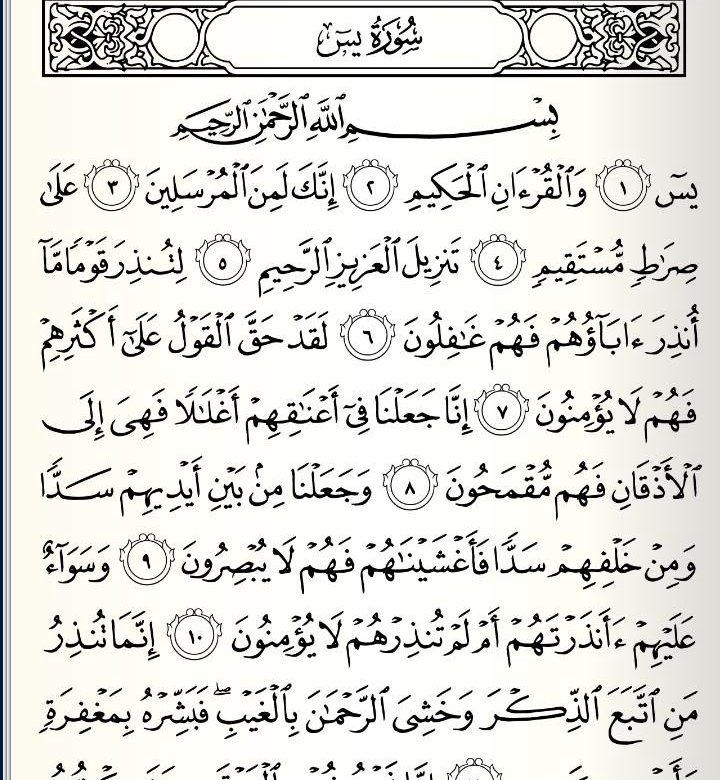 سُورَةُ يسٓ
بِسْمِ ٱللَّهِ ٱلرَّحْمَٰنِ ٱلرَّحِيمِ
يسٓ ١ وَٱلْقُرْءَانِ ٱلْحَكِيمِ ٢ إِنَّكَ لَمِنَ ٱلْمُرْسَلِينَ ٣ عَلَىٰ
صِرَٰطٍ مُّسْتَقِيمٍ ٤ تَنزِيلَ ٱلْعَزِيزِ ٱلرَّحِيمِ ٥ لِتُنذِرَ قَوْمًا مَّآ
أُنذِرَ ءَابَآؤُهُمْ فَهُمْ غَٰفِلُونَ ٦ لَقَدْ حَقَّ ٱلْقَوْلُ عَلَىٰٓ أَكْثَرِهِمْ
فَهُمْ لَا يُؤْمِنُونَ ٧ إِنَّا جَعَلْنَا فِىٓ أَعْنَٰقِهِمْ أَغْلَٰلًا فَهِىَ إِلَى
ٱلْأَذْقَانِ فَهُم مُّقْمَحُونَ ٨ وَجَعَلْنَا مِنۢ بَيْنِ أَيْدِيهِمْ سَدًّا
وَمِنْ خَلْفِهِمْ سَدًّا فَأَغْشَيْنَٰهُمْ فَهُمْ لَا يُبْصِرُونَ ٩ وَسَوَآءٌ
عَلَيْهِمْ ءَأَنذَرْتَهُمْ أَمْ لَمْ تُنذِرْهُمْ لَا يُؤْمِنُونَ ١٠ إِنَّمَا تُنذِرُ
مَنِ ٱتَّبَعَ ٱلذِّكْرَ وَخَشِىَ ٱلرَّحْمَٰنَ بِٱلْغَيْبِ ۖ فَبَشِّرْهُ بِمَغْفِرَةٍ